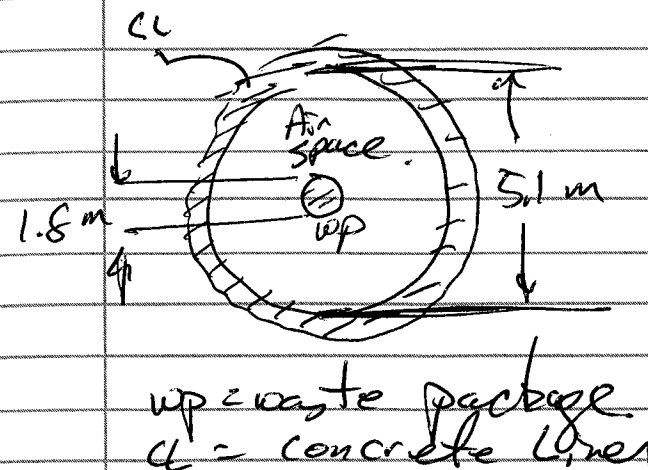 CL
Air
space.
5.1 m
1.8 m
wp
wp = waste package
CL = concrete Liner